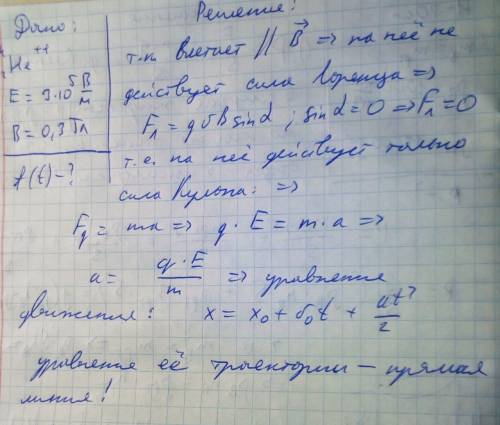 Дано:
He⁺⁺
E = 3·10⁵ В/м
B = 0,3 Тл
f(t) - ?
Решение:
т.к. влетает // B⃗ => на неё не
действует сила Лоренца =>
Fл = qυB sinα ; sinα = 0 => Fл = 0
т.е. на неё действует только
сила Кулона: =>
Fq = ma => q · E = m · a =>
a = q·E/m => уравнение
движения: x = x₀ + υ₀t + at²/2
уравнение её траектории – прямая
линия!